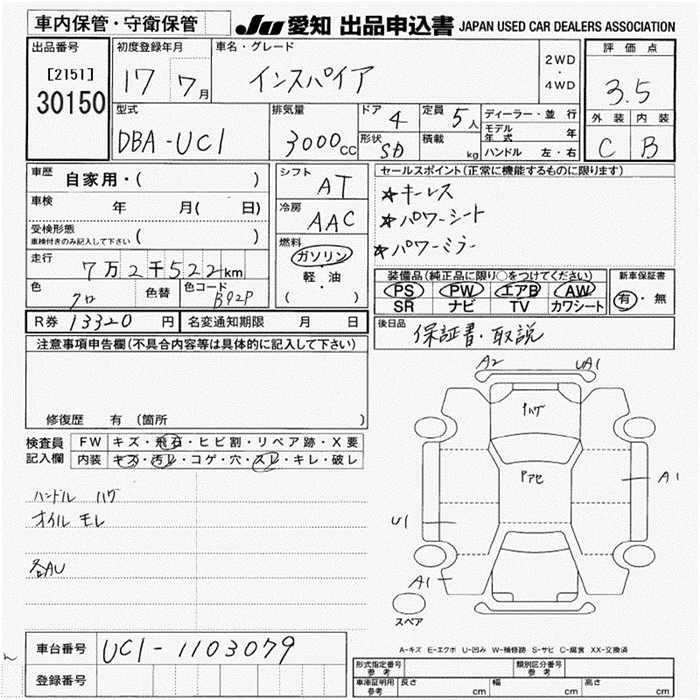 車内保管・守衛保管
JU 愛知 出品申込書 JAPAN USED CAR DEALERS ASSOCIATION
出品番号
[2151]
30150
初度登録年月
17 7月
車名・グレード
インスパイア
2WD
・
4WD
評価点
3.5
外装 内装
C B
型式
DBA-UC1
排気量
3000cc
ドア 4
形状 SD
定員 5人
積載 kg
ディーラー・並行
モデル年式 年
ハンドル 左・右
車歴 自家用・( )
車検 年 月( 日)
受検形態
車検付きのみ記入して下さい ( )
走行 7万2千522km
色 クロ 色替 色コード B92P
シフト AT
冷房 AAC
燃料
ガソリン
・
軽・油
( )
セールスポイント(正常に機能するものに限ります)
★キーレス
★パワーシート
★パワーミラー
装備品(純正品に限り○をつけてください)
PS PW エアB AW
SR ナビ TV カワシート
新車保証書
有・無
R券 13320円 名変通知期限 月 日
後日品
保証書・取説
注意事項申告欄(不具合内容等は具体的に記入して下さい)
修復歴 有 (箇所 )
検査員記入欄
FW キズ・飛石・ヒビ割・リペア跡・X要
内装 キズ・汚レ・コゲ・穴・スレ・キレ・破レ
ハンドル ハゲ
オイル モレ
各AU
A2 UA1
ハゲ
アセ
A1
U1
A1
スペア
A-キズ E-エクボ U-凹み W-補修跡 S-サビ C-腐食 XX-交換済
車台番号 UC1-1103079
登録番号
形式指定番号 参考
類別区分番号 参考
車庫証明用 参考
長さ cm 幅 cm 高さ cm